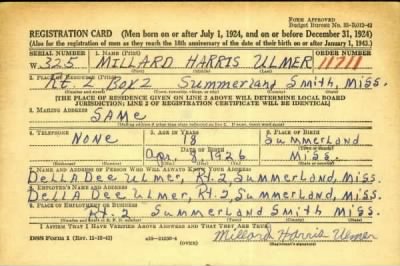 Form Approved
Budget Bureau No. 33-R012-42
REGISTRATION CARD (Men born on or after July 1, 1924, and on or before December 31, 1924)
(Also for the registration of men as they reach the 18th anniversary of the date of their birth on or after January 1, 1943.)
SERIAL NUMBER 1. NAME (Print) ORDER NUMBER
W 325 MILLARD HARRIS ULMER 11711
2. PLACE OF RESIDENCE (Print)
Rt. 2 Box 2 Summerland Smith, Miss.
[THE PLACE OF RESIDENCE GIVEN ON LINE 2 ABOVE WILL DETERMINE LOCAL BOARD
JURISDICTION; LINE 2 OF REGISTRATION CERTIFICATE WILL BE IDENTICAL]
3. MAILING ADDRESS
SAME
4. TELEPHONE 5. AGE IN YEARS 6. PLACE OF BIRTH
NONE 18 Summerland
DATE OF BIRTH
Apr. 8 1926 Miss.
7. NAME AND ADDRESS OF PERSON WHO WILL ALWAYS KNOW YOUR ADDRESS
Della Dee Ulmer, Rt. 2, Summerland, Miss.
8. EMPLOYER'S NAME AND ADDRESS
Della Dee Ulmer, Rt. 2, Summerland, Miss.
9. PLACE OF EMPLOYMENT OR BUSINESS
Rt. 2 Summerland Smith Miss.
I AFFIRM THAT I HAVE VERIFIED ABOVE ANSWERS AND THAT THEY ARE TRUE.
DSS Form 1 (Rev. 11-16-42) (OVER) Millard Harris Ulmer